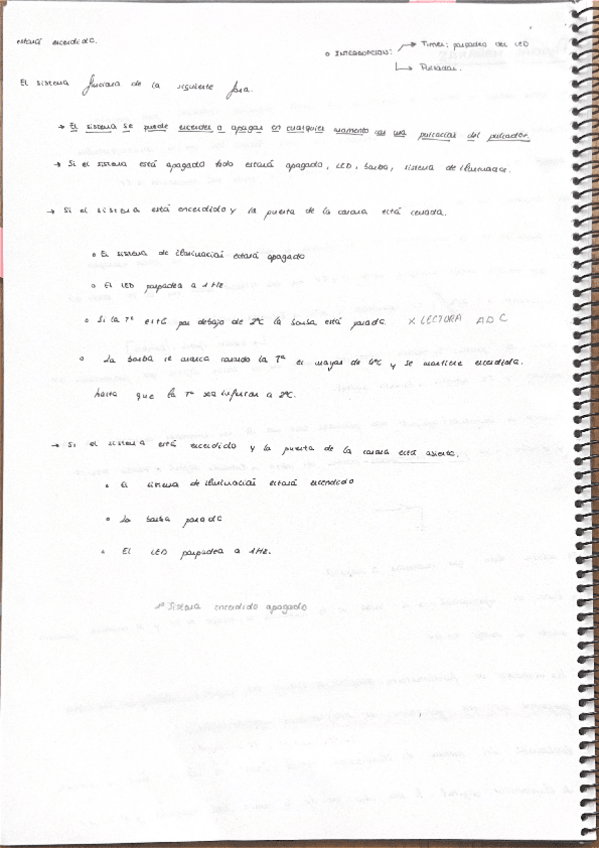 estará encendida.
o INTERRUPCION: → Timer; parpadeo del LED
→ Pulsador.
El sistema funciona de la siguiente forma.
→ El sistema se puede encender o apagar en cualquier momento con una pulsación del pulsador.
→ Si el sistema está apagado todo estará apagado, LED, bomba, sistema de iluminación.
→ Si el sistema está encendido y la puerta de la camara está cerrada.
o El sistema de iluminación estará apagado
o El LED parpadea a 1 Hz.
o Si la Tª está por debajo de 2ºC la bomba está parada. X LECTURA ADC
o La bomba se marca cuando la Tª es mayor de 6ºC y se mantiene encendida.
hasta que la Tª sea inferior a 2ºC.
→ Si el sistema está encendido y la puerta de la camara está abierta.
• El sistema de iluminación estará encendido
o La bomba parada
o El LED parpadea a 1Hz.
1º Sistema encendido apagado